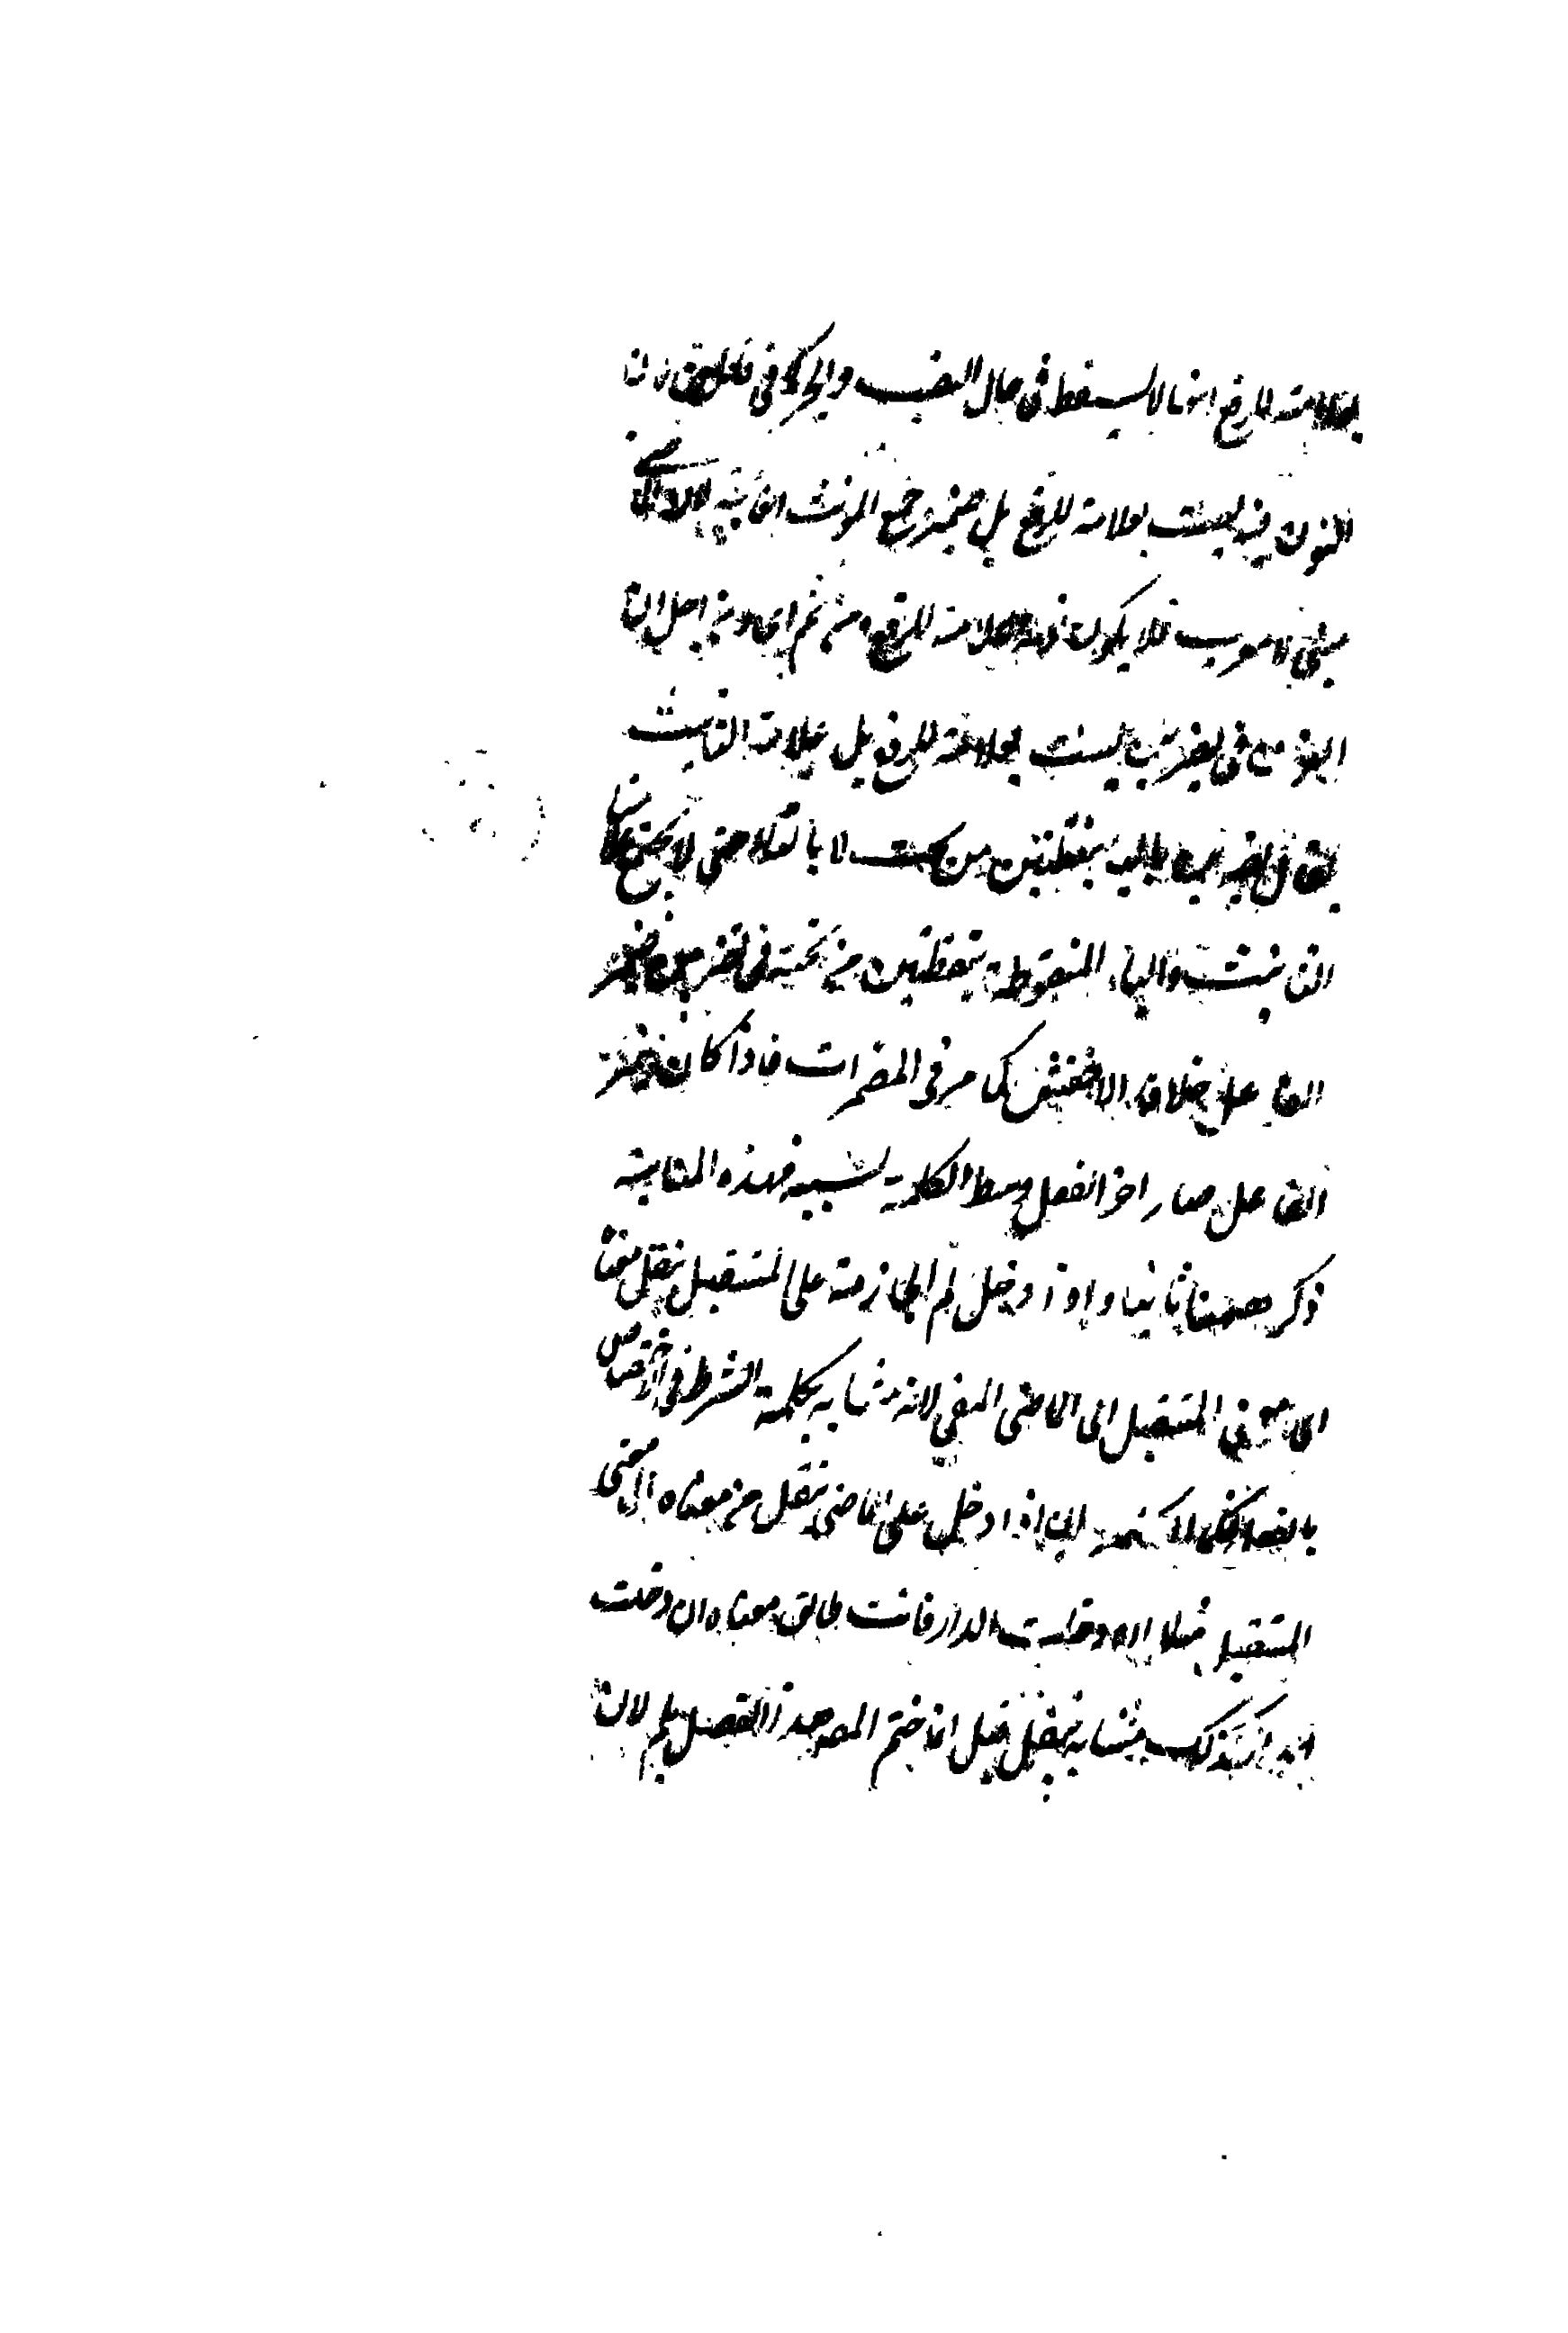 بعلامة للرفع انها لا يسقط في حال النصب والجر كما في فعلهن فان
النون فيه ليست بعلامة للرفع بل ضمير جمع المؤنث الغائبة
مبني لا معرب فلا يكون علامة للرفع ومن ثم اي ومن اجل ان
النون في يضربن ليست بعلامة للرفع بل علامة التانيث
يقال يضربن بالياء بنقطتين من تحت لا بالتاء حتى لا يجتمع علامتا
التانيث والياء المنقوطة بنقطتين من تحته في تضربين ضمير
الفاعل خلافا للاخفش كما مر في المضمرات فاذا كان ضمير
الفاعل صار اخر الفعل وسط الكلمة لشبيه فهذه المناسبة
ذكر ههنا ثانيا واذا دخل لم الجازمة على المستقبل ينقل معناه
اي معنى المستقبل الى الماضي المنفي لانه مشابه بكلمة الشرط في الاختصاص
اذا دخل على الماضي ينقل من معناه الى معنى
المستقبل مثلا ان دخلت الدار فانت طالق معناه ان دخلت
كذلك مشابه قيل انما ختم المص هذا الفصل بلم لان